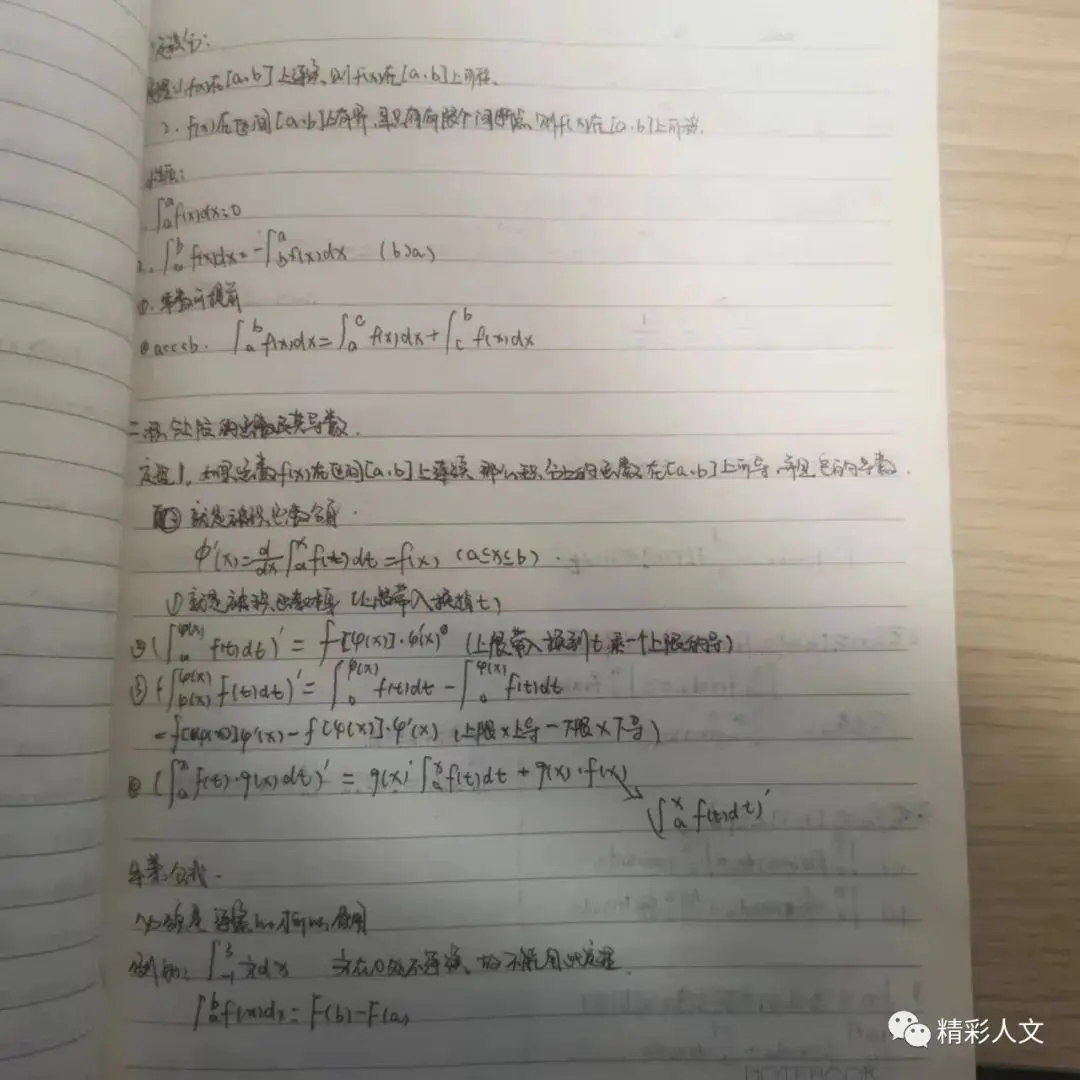 定积分:
定理1. f(x)在[a,b]上连续,则f(x)在[a,b]上可积.
2. f(x)在区间[a,b]上有界,且只有有限个间断点,则f(x)在[a,b]上可积.
性质:
∫ₐᵃf(x)dx=0
2. ∫ₐᵇ f(x)dx=-∫_bᵃf(x)dx (b>a)
常数可提前
a<c<b. ∫ₐᵇ f(x)dx=∫ₐᶜ f(x)dx+∫_cᵇ f(x)dx
二.积分上限的函数及其导数.
定理1. 如果函数f(x)在区间[a,b]上连续 那么积分上的函数在[a,b]上可导,并且它的导数
就是被积函数
Φ'(x)=d/dx ∫ₐˣ f(t)dt=f(x) (a≤x≤b).
① 就是被积函数本身 (上限带入换掉t)
② (∫ₐ^φ(x) f(t)dt)' = f[φ(x)]·φ'(x) (上限带入换到t.乘一个上限的导)
③ (∫ f(t)dt)' = ∫₀ f(t)dt - ∫₀ f(t)dt
φ'(x)-f[φ(x)]·φ'(x) (上限×上导-下限×下导)
④ (∫ₐˣ f(t)·g(x)dt)' = g(x)' ∫ₐˣ f(t)dt + g(x)·f(x)
(∫ₐˣ f(t)dt)'
牛莱公式.
必须是连续 使用
例如: ∫₋₁³ dx 在0处不连续,故不能用此定理.
∫ₐᵇf(x)dx=F(b)-F(a)
NOTEBOOK
精彩人文